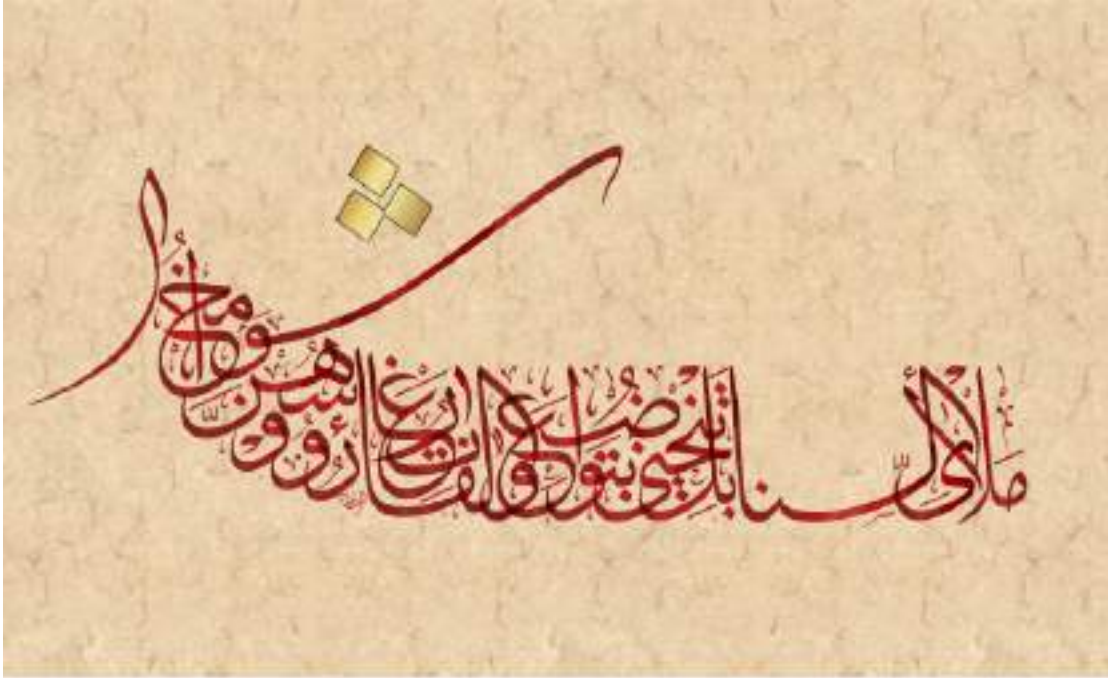 ملأى السنابل تنحني بتواضع والفارغات رؤوسهن شوامخ